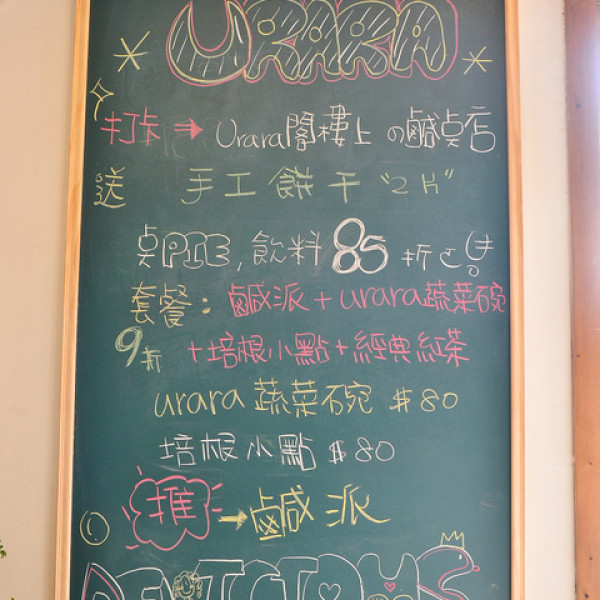 URARA
打卡 ⇒ Urara閣樓上の鹹点店
送 手工餅干 "2片"
点PIE, 飲料 85折
套餐: 鹹派 + urara蔬菜碗
9折 +培根小點+經典紅茶
urara 蔬菜碗 $80
培根小點 $80
推 → 鹹派
DELICIOUS